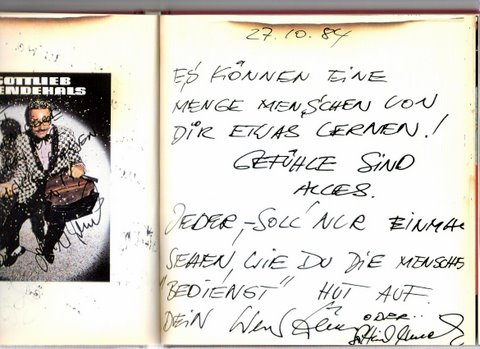 GOTTLIEB
ENDEHALS
27.10.84
ES KÖNNEN EINE
MENGE MENSCHEN VON
DIR ETWAS LERNEN!
GEFÜHLE SIND
ALLES.
JEDER, SOLL NUR EINMAL
SEHEN, WIE DU DIE MENSCHE
"BEDIENGT" HUT AUF.
DEIN
ODER..